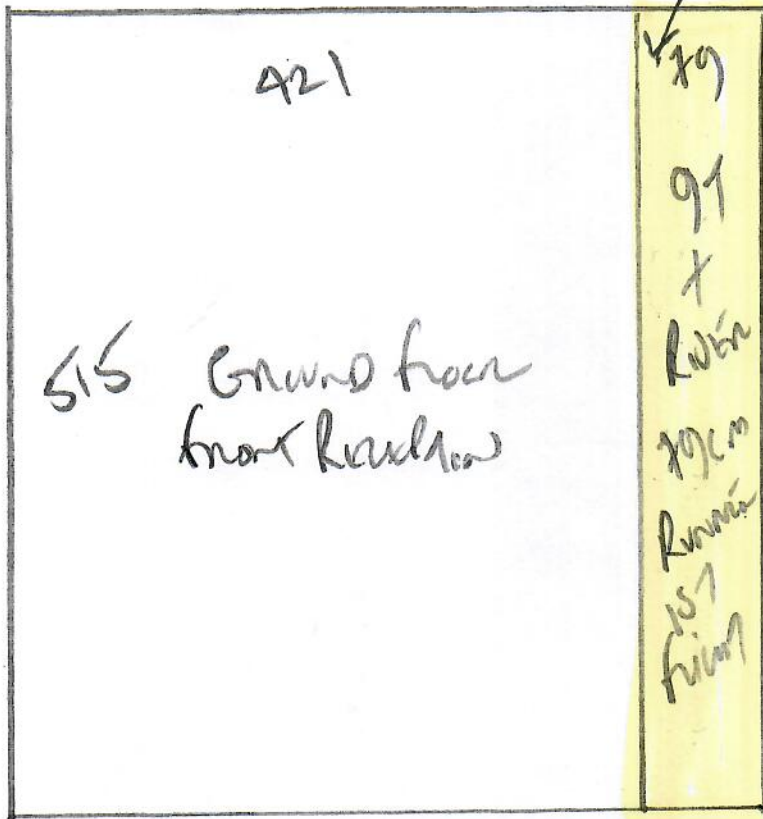 421
515 GROUND FLOOR
FRONT RECEPTION
79
9T
X
RISER
79cm
RUNNER
1ST
FLIGHT